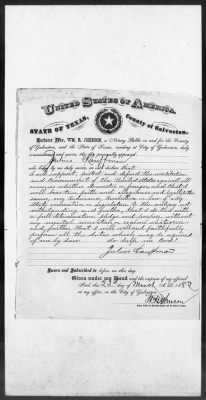 United States of America,
STATE OF TEXAS, County of Galveston.
Before Me, WM. R. JOHNSON, a Notary Public in and for the County
of Galveston, and the State of Texas, residing at City of Galveston, duly
commissioned and sworn, this day personally appeared
Julius Kauffman
who being by me duly sworn, on oath states that
I will support, protect and defend the constitution
and Government of the United States against all
enemies whether domestic or foreign, and that I
will bear true faith and allegiance and loyalty to the
same, any ordinance, resolution or law of any
State convention or legislature to the contrary not
withstanding, and further, that I do this with
a full determination, pledge and purpose, without
any mental reservation or evasion whatsoever
and further that I will well and faithfully
perform all the duties which may be required
of me by law. So help me God!
Julius Kauffman
Sworn and Subscribed to before me this day.
Given under my Hand and the impress of my official
Seal, this day of March A.D. 1882
at my office, in the City of Galveston.